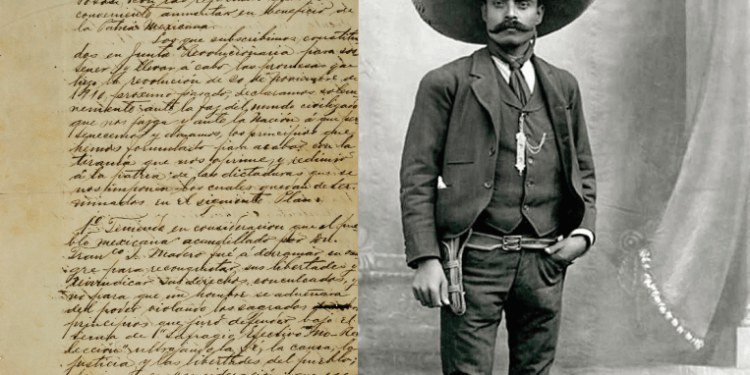 conveniente aumentar en beneficio de
la Patria Mexicana.
Los que subscribimos, constitui
dos en Junta Revolucionaria para sos
tener y llevar á cabo las promesas que
hizo la revolución de 20 de Noviembre de
1910, próximo pasado, declaramos solem
nemente ante la faz del mundo civilizado
que nos juzga y ante la Nación á que per
tenecemos y amamos, los principios que
hemos formulado para acabar con la
tiranía que nos oprime y redimir
á la patria de las dictaduras que se
nos imponen las cuales quedan deter
minadas en el siguiente Plan:
1º. Teniendo en consideración que el pue
blo mexicano acaudillado por Don
Franco. I. Madero fué á derramar su san
gre para reconquistar sus libertades y
reivindicar sus derechos conculcados, y
no para que un hombre se adueñara
del poder violando los sagrados
principios que juró defender bajo el
lema de "Sufragio Efectivo" "No Re
elección" ultrajando la fé, la causa, la
justicia y las libertades del pueblo;